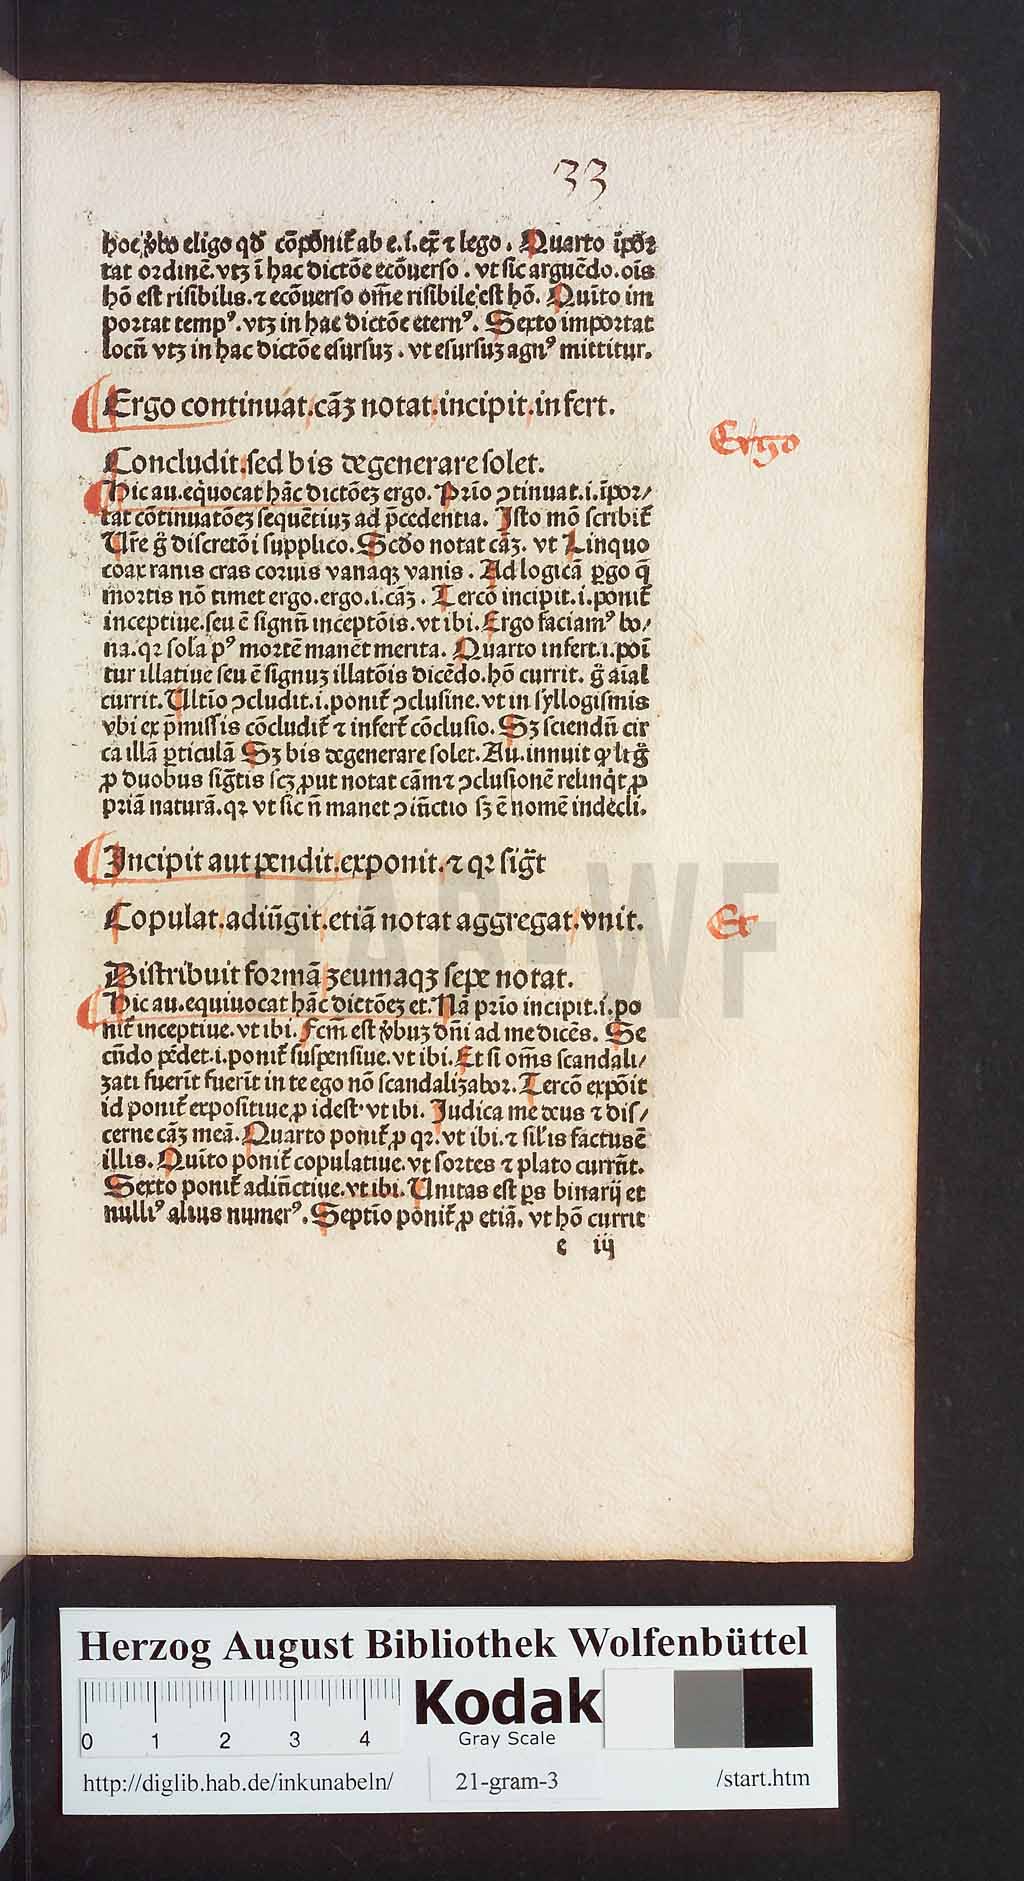 33
hoc v̾bo eligo qđ cōponit᷑ ab e.i.ex̄ ⁊ lego. Quarto īpoꝛ
tat oꝛdinē.vtꝫ ī hac dictōe ecōuerso. vt sic arguēdo.oīs
hō est risibilis.⁊ ecōuerso om̄e risibile est hō. Quīto im
portat tempꝰ.vtꝫ in hac dictōe eternꝰ. Sexto importat
locū vtꝫ in hac dictōe esursuꝫ. vt esursuꝫ agnꝰ mittitur.
Ergo continuat.cāꝫ notat.incipit.infert.
Ergo
Concludit.sed bis degenerare solet.
Hic au.eq̇uocat hāc dictōeꝫ ergo. Pꝛīo ꝯtinuat.i.īpoꝛ/
tat cōtinuatōeꝫ sequētiuꝫ ad p̄cedentia. Isto mō scribit᷑
Vr̄e ḡ discretōi supplico. Scd̄o notat cāꝫ. vt Linquo
coax ranis cras coꝛuis vanaqꝫ vanis. Ad logicā ꝑgo q̄
moꝛtis nō timet ergo.ergo.i.cāꝫ. Tercō incipit.i.ponit᷑
inceptiue.seu ē signū inceptōis.vt ibi. Ergo faciamꝰ bo/
na.qꝛ sola pꝰ moꝛtē manēt merita. Quarto infert.i.poī
tur illatiue seu ē signuꝫ illatōis dicēdo.hō currit. ḡ aīal
currit. Vltīo ꝯcludit.i.ponit᷑ ꝯclusiue.vt in syllogismis
vbi ex p̄missis cōcludit᷑ ⁊ infert᷑ cōclusio. Sꝫ sciendū cir
ca illā ꝑticulā Sꝫ bis degenerare solet. Au.innuit ꝙ lꝫ ḡ
ꝓ duobus siḡtis scꝫ ꝓut notat cām ⁊ ꝯclusionē relinq̇t ꝓ
pꝛiā naturā.qꝛ vt sic n̄ manet ꝯiūctio sꝫ ē nomē indecli.
Incipit aut pendit.exponit.⁊ qꝛ siḡt
Copulat.adiūgit.etiā notat aggregat.vnit.
Et
Distribuit formā zeumaqꝫ sepe notat.
Hic au.equiuocat hāc dictōeꝫ et. Nā pꝛīo incipit.i.po
nit᷑ inceptiue.vt ibi. Fcm̄ est v̾buꝫ dn̄i ad me dicēs. Se
cūdo pēdet.i.ponit᷑ suspensiue.vt ibi. Et si om̄s scandali/
zati fuerīt fuerīt in te ego nō scandalizaboꝛ. Tercō expōit
id ponit᷑ expositiue ꝓ idest.vt ibi. Iudica me deus ⁊ dis/
cerne cāꝫ meā. Quarto ponit᷑ ꝓ qꝛ.vt ibi.⁊ sil̄is factus ē
illis. Quīto ponit᷑ copulatiue.vt soꝛtes ⁊ plato currūt.
Sexto ponit᷑ adiūctiue.vt ibi. Vnitas est ꝑs binarij et
nulliꝰ alius numerꝰ. Septīo ponit᷑ ꝓ etiā. vt hō currit
e iij
HAB-WF
Herzog August Bibliothek Wolfenbüttel
0 1 2 3 4
Kodak
Gray Scale
http://diglib.hab.de/inkunabeln/ 21-gram-3 /start.htm